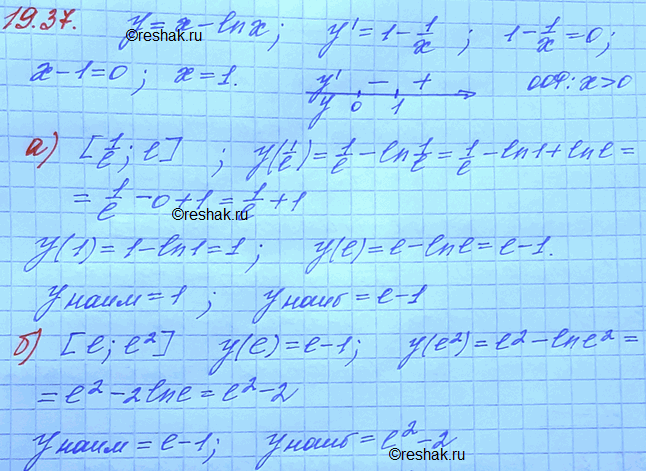 19.37. y = x - lnx; y' = 1 - 1/x; 1 - 1/x = 0;
©reshak.ru
x - 1 = 0; x = 1. y' - + ООФ: x > 0
y 0 1
а) [1/e; e]; y(1/e) = 1/e - ln 1/e = 1/e - ln1 + lne =
= 1/e - 0 + 1 = 1/e + 1
©reshak.ru
y(1) = 1 - ln1 = 1; y(e) = e - lne = e - 1.
y наим = 1; y наиб = e - 1
б) [e; e²] y(e) = e - 1; y(e²) = e² - lne² =
= e² - 2lne = e² - 2
y наим = e - 1; y наиб = e² - 2
©reshak.ru